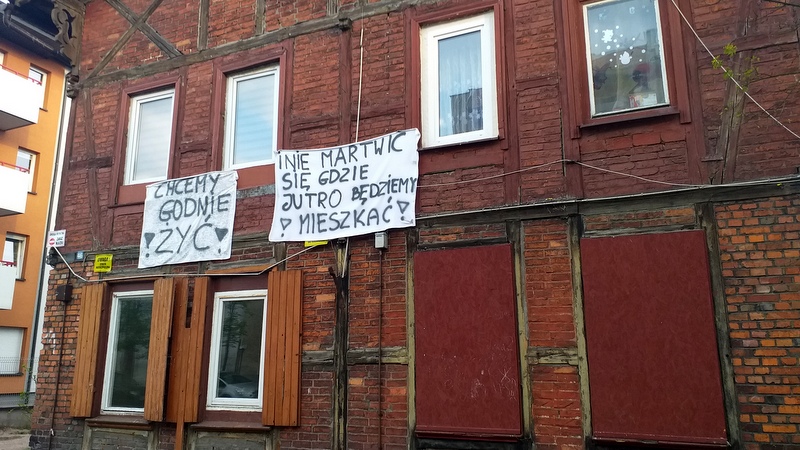 CHCEMY
GODNIE
ŻYĆ!
I NIE MARTWIĆ
SIĘ GDZIE
JUTRO BĘDZIEMY
MIESZKAĆ!